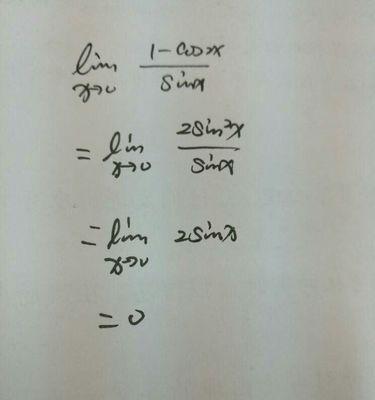 lim x→0 (1-cos2x)/(sinx)
= lim x→0 (2sin²x)/(sinx)
= lim x→0 2sinx
= 0